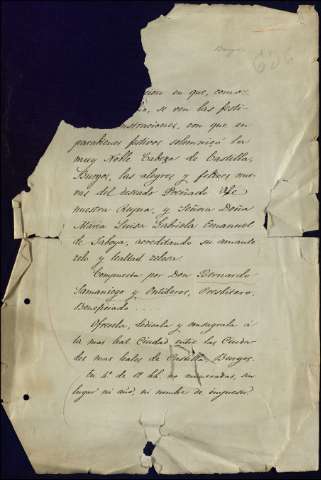 Burgos
...sion en que, como
...ia, se ven las festi-
...nstruciones, con que en
parabienes festivos solemnizò la
muy Noble Cabeza de Castilla,
Burgos, las alegres y felices nue-
vas del Preñado de
nuestra Reyna, y Señora Doña
Maria Luisa Gabriela Emanuel
de Saboya, acreditando su amante
zelo y lealtad zelosa.
Compuesta por Don Bernardo
Samaniego y Ontiberos, Presbitero
Beneficiado ....
Ofrecela, dedicala y consagrala à
la mas leal Ciudad entre las Ciuda-
des mas leales de Castilla, Burgos.
En 4.º de 12 hh. no numeradas, sin
lugar ni año, ni nombre de impresor.